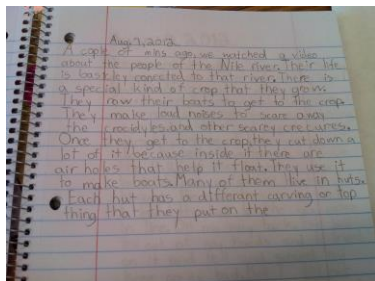 Aug. 9, 2012
A cople of mins ago, we watched a video
about the people of the Nile river. Their life
is basicley conected to that river. There is
a special kind of crop that they grow.
They row their boats to get to the crop.
They make loud noises to scare away
the crocidyles and other scarey creetures.
Once they get to the crop, they cut down a
lot of it because inside it there are
air holes that help it float. They use it
to make boats. Many of them live in huts.
Each hut has a differant carving or top
thing that they put on the